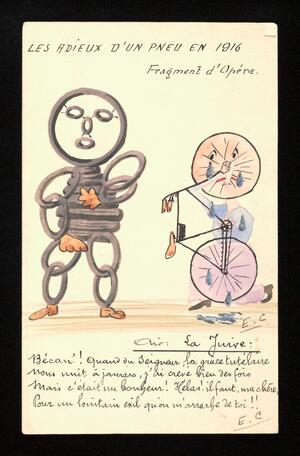 LES ADIEUX D'UN PNEU EN 1916
Fragment d'Opéra.
E.C
Air: La Juive:
Bécan'! Quand du Seigneur la grâce tutélaire
Nous unit à jamais, j'ai crevé bien des fois
Mais c'était un bonheur! Hélas! il faut, ma chère,
Pour un lointain exil qu'on m'arrache de toi!!
E.C